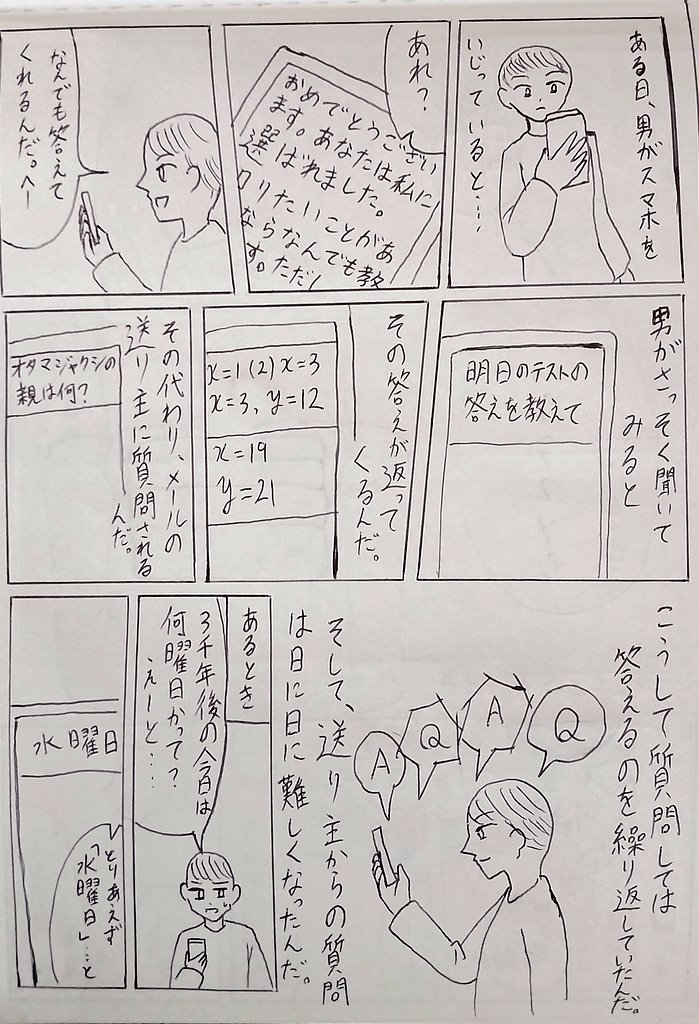 ある日、男がスマホを
いじっていると…
あれ？
おめでとうござい
ます。あなたは私に
選ばれました。
知りたいことがあ
るならなんでも教
す。ただし
なんでも答えて
くれるんだ。へー
男がさっそく聞いて
みると
明日のテストの
答えを教えて
その答えが返って
くるんだ。
x=1 (2) x=3
x=3, y=12
x=19
y=21
その代わり、メールの
送り主に質問される
んだ。
オタマジャクシの
親は何？
こうして質問しては
答えるのを繰り返していたんだ。
Q
A
Q
A
そして、送り主からの質問
は日に日に難しくなったんだ。
あるとき
3千年後の今日は
何曜日かって？
えーと…
水曜日
とりあえず
「水曜日」…と